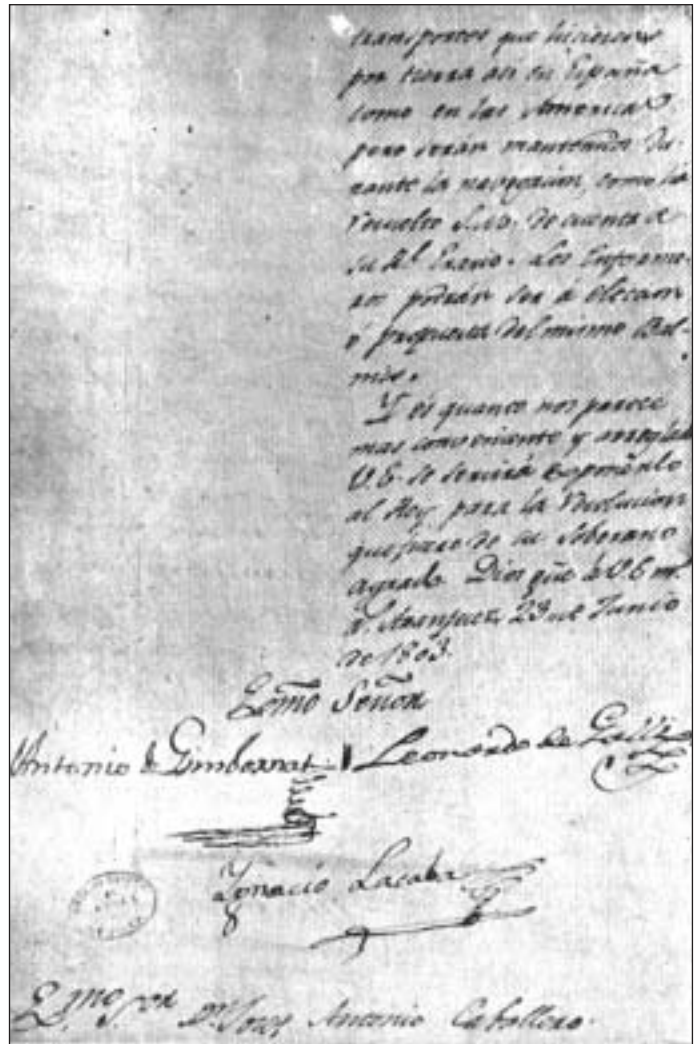 transportes que hicieren
por tierra asi en España
como en las Americas
pero serán mantenidos du-
rante la navegacion, como ha
resuelto S.M. de cuenta de
su Rl. Erario. Los Enferme-
ros podrán ser á eleccion
ó propuesta del mismo Bal-
mis.
Y es quanto nos parece
mas conveniente y arreglado
V.E. se servirá exponerlo
al Rey para la resolucion
que fuere de su soberano
agrado. Dios gũe á V.E. ms.
as. Aranjuez, 23 de Junio
de 1803.
Exmõ Señor
Antonio de Gimbernat Leonardo de Galli
Ignacio Lacaba
Exmo. Sor. Dn. Josef Antonio Caballero.